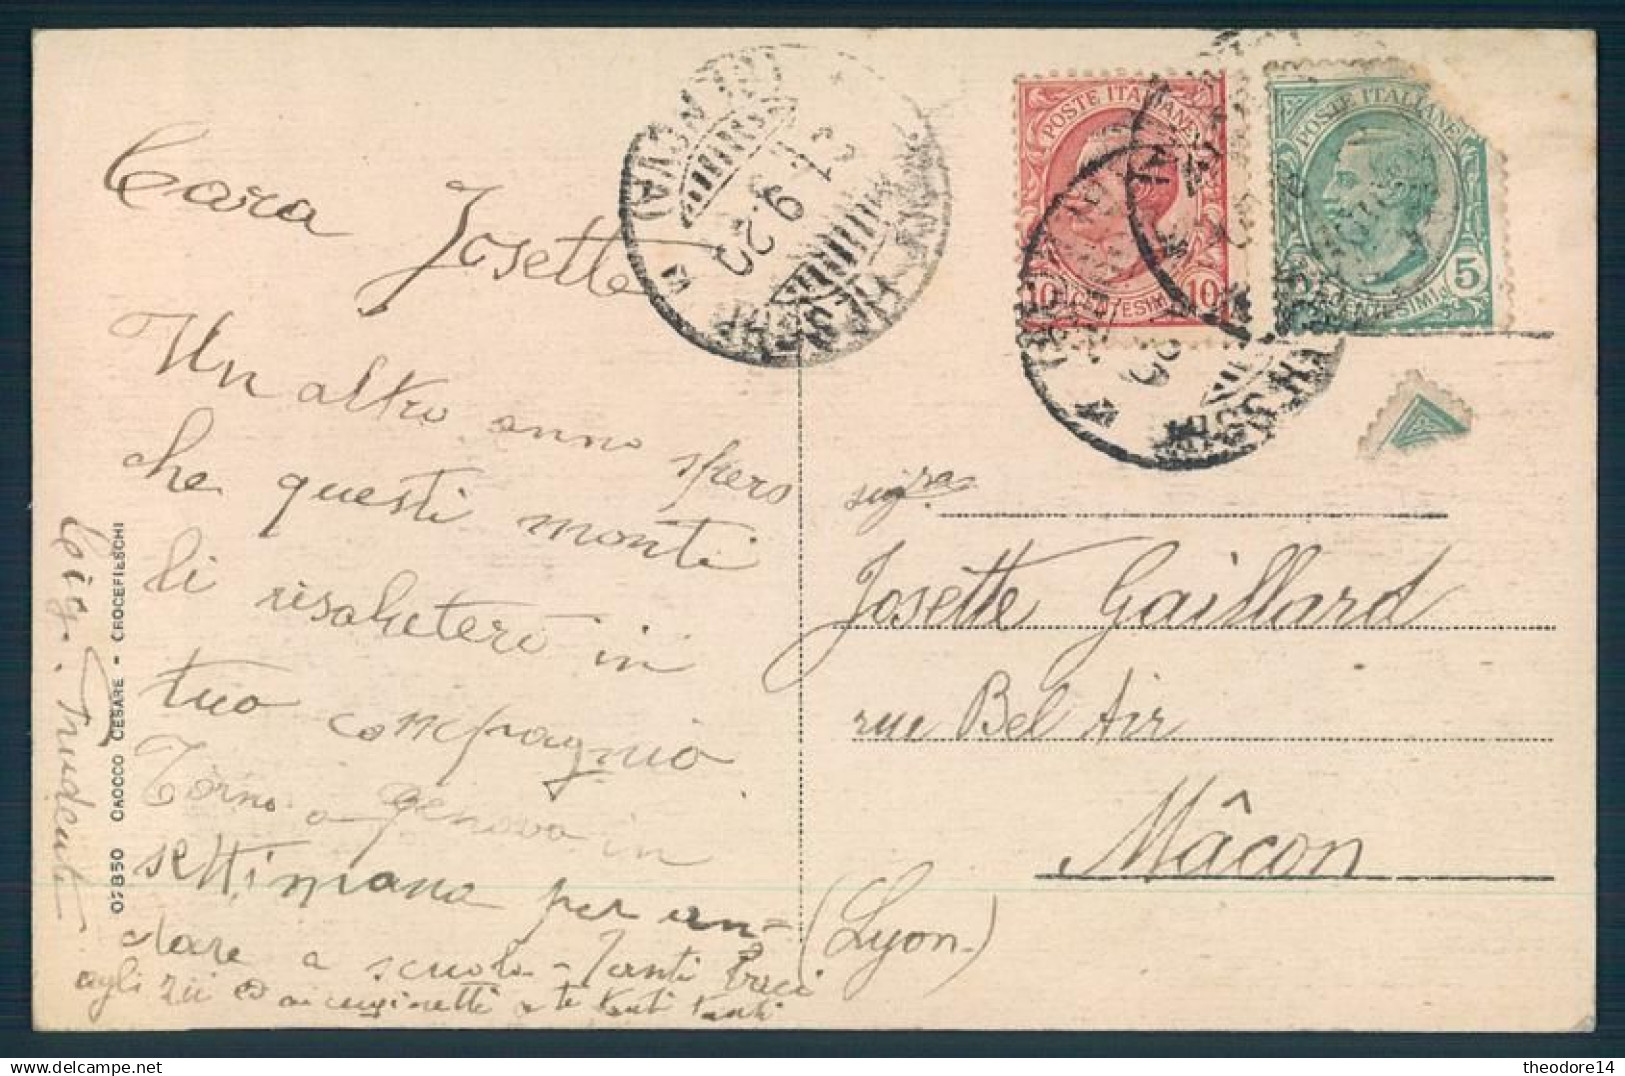 Cara Josette
Un altro anno spero
che questi monti
li risaliterò in
tua compagnia
Torno a Genova in
settimana per an=
dare a scuola - Tanti baci
agli zii e ai cuginetti a te tanti tanti
Cig. Trudenti
02850 CAOCCO CESARE - CROCEFIESCHI
9.20
POSTE ITALIANE
10 CENTESIMI 10
POSTE ITALIANE
CENTESIMI 5
sig.ra
Josette Gaillard
rue Bel Air
Mâcon
(Lyon.)
theodore14